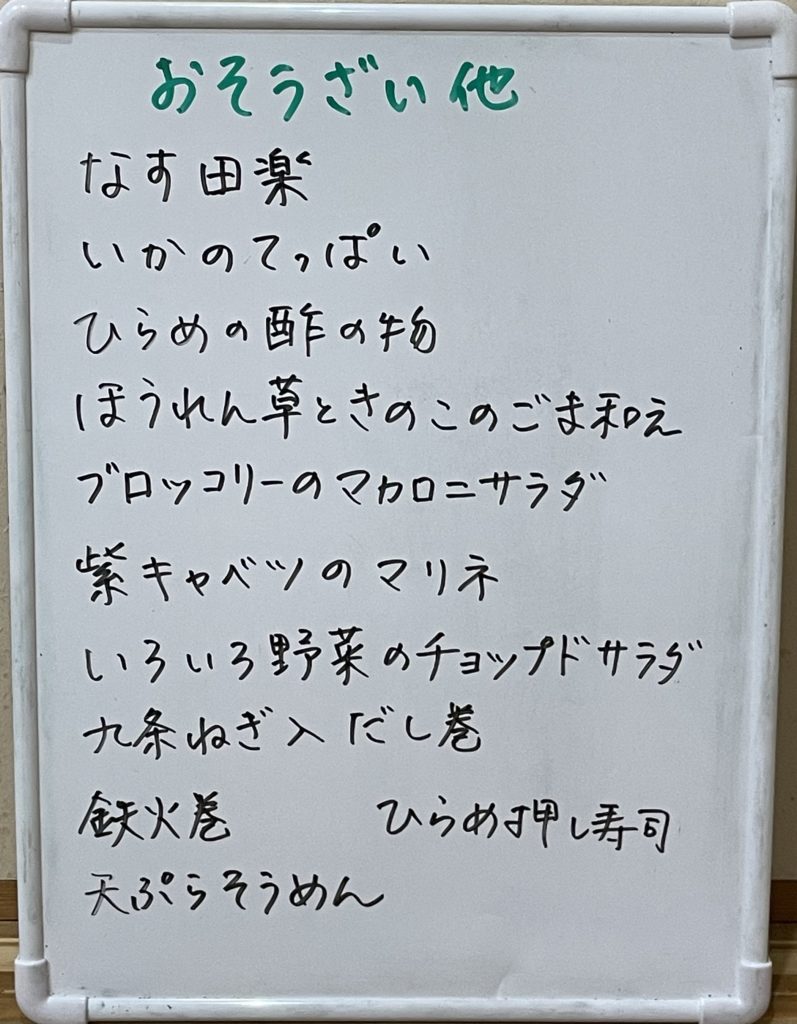 おそうざい他
なす田楽
いかのてっぱい
ひらめの酢の物
ほうれん草ときのこのごま和え
ブロッコリーのマカロニサラダ
紫キャベツのマリネ
いろいろ野菜のチョップドサラダ
九条ねぎ入だし巻
鉄火巻 ひらめ押し寿司
天ぷらそうめん